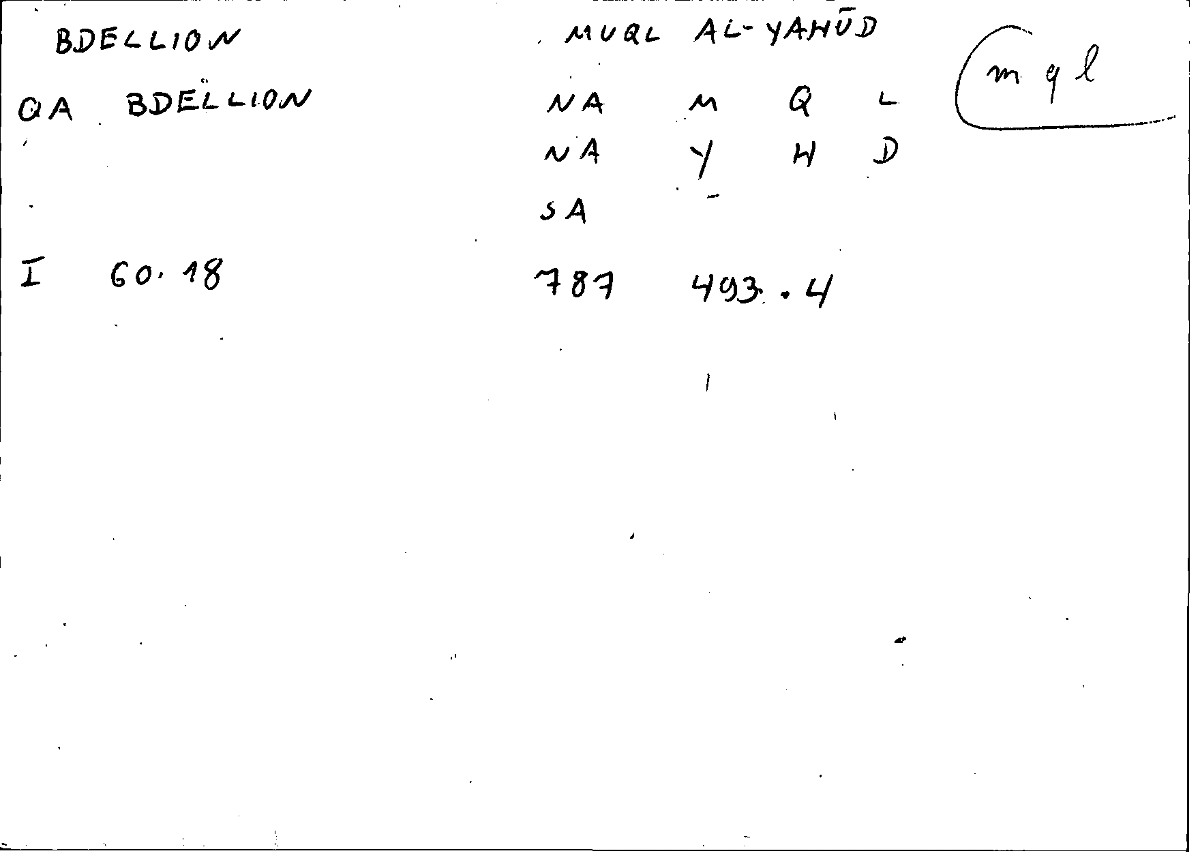 BDELLION MUQL AL-YAHŪD
mql
QA BDELLION NA M Q L
NA Y H D
SA -
I 60.18 787 493.4